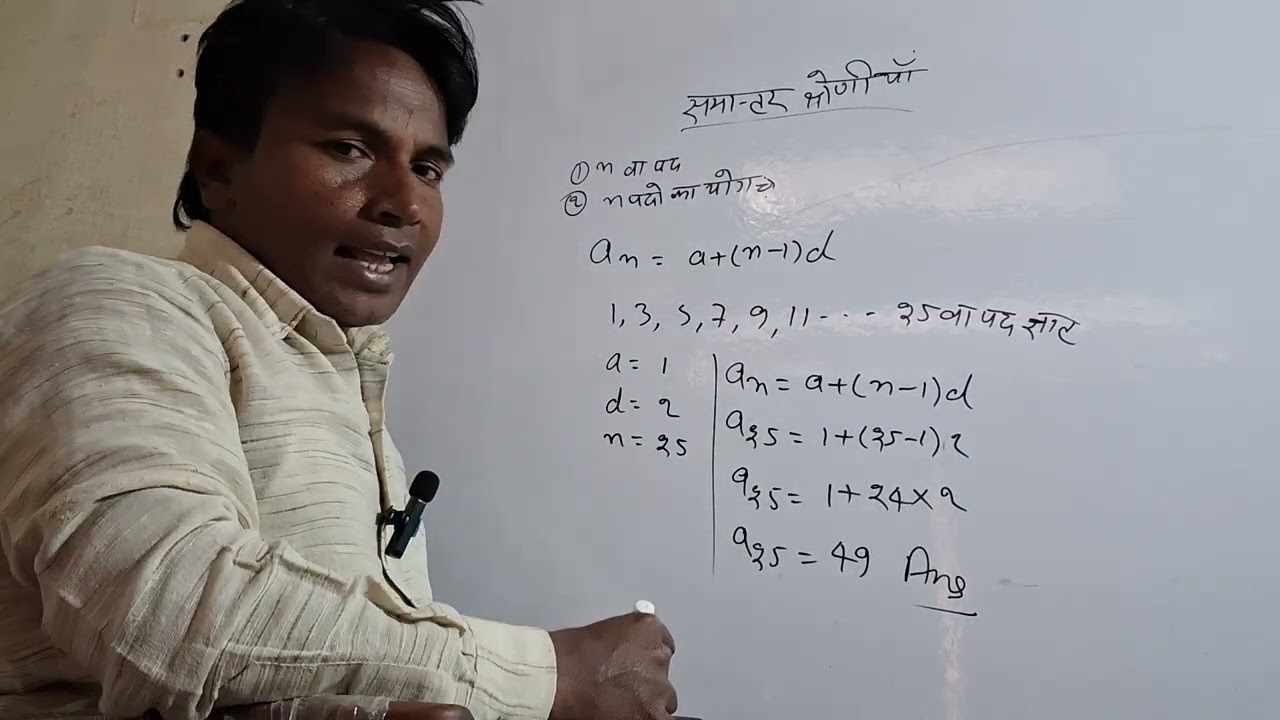 समान्तर श्रेणीयाँ
① n वा पद
② n पदो का योगफल
an = a+(n-1)d
1, 3, 5, 7, 9, 11 --- 25 वा पद ज्ञात
a = 1
d = 2
n = 25
an = a+(n-1)d
a25 = 1+(25-1)2
a25 = 1+24×2
a25 = 49 Ans